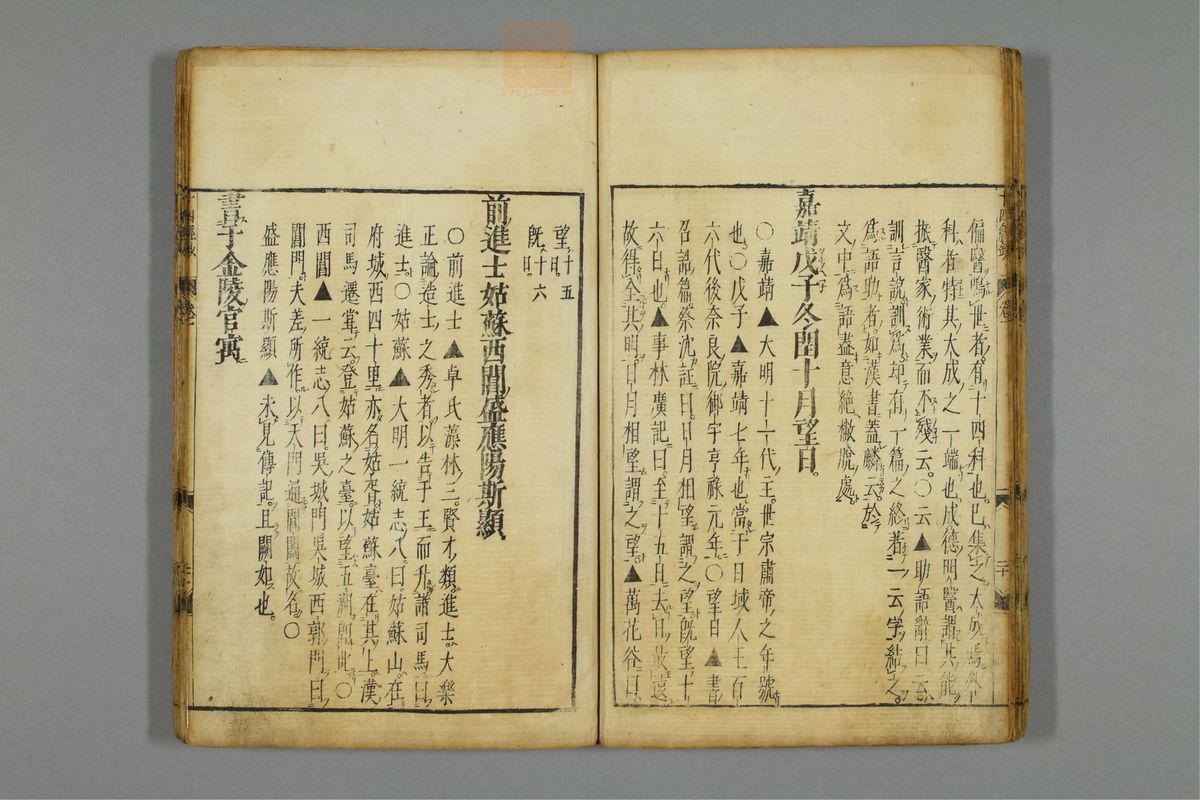 偏醫鳴世者有十四科也已集之大成焉外
科者特其大成之一端也成德明醫謂其能
振醫家術業而不殘云○云▲助語辭曰云
訓言說訓爲却有一篇之終著一云字結之
爲語助者如漢書蓋麟云於
文中爲語盡意絕撇脫處
嘉靖戊子冬閏十月望日
○嘉靖▲大明十一代主世宗肅帝之年號
也○戊子▲嘉靖七年也當于日域人王百
六代後奈良院御宇亨祿元年○望日▲書
召誥篇蔡沈註曰日月相望謂之望旣望十
六日也▲事林廣記曰至十五日去日最遠
故得全其明日月相望謂之望▲萬花谷曰
望十五日
旣十六日
前進士姑蘇西閶盛應陽斯顯
○前進士▲卓氏藻林三賢才類進士大樂
正論造士之秀者以告于王而升諸司馬曰
進士○姑蘇▲大明一統志八曰姑蘇山在
府城西四十里亦名姑胥姑蘇臺在其上漢
司馬遷嘗云登姑蘇之臺以望五湖卽此○
西閶▲一統志八曰吳城門吳城西郭門曰
閶門夫差所作以天門通閶闔故名○
盛應陽斯顯▲未見傳記且闕如也
書于金陵官寓